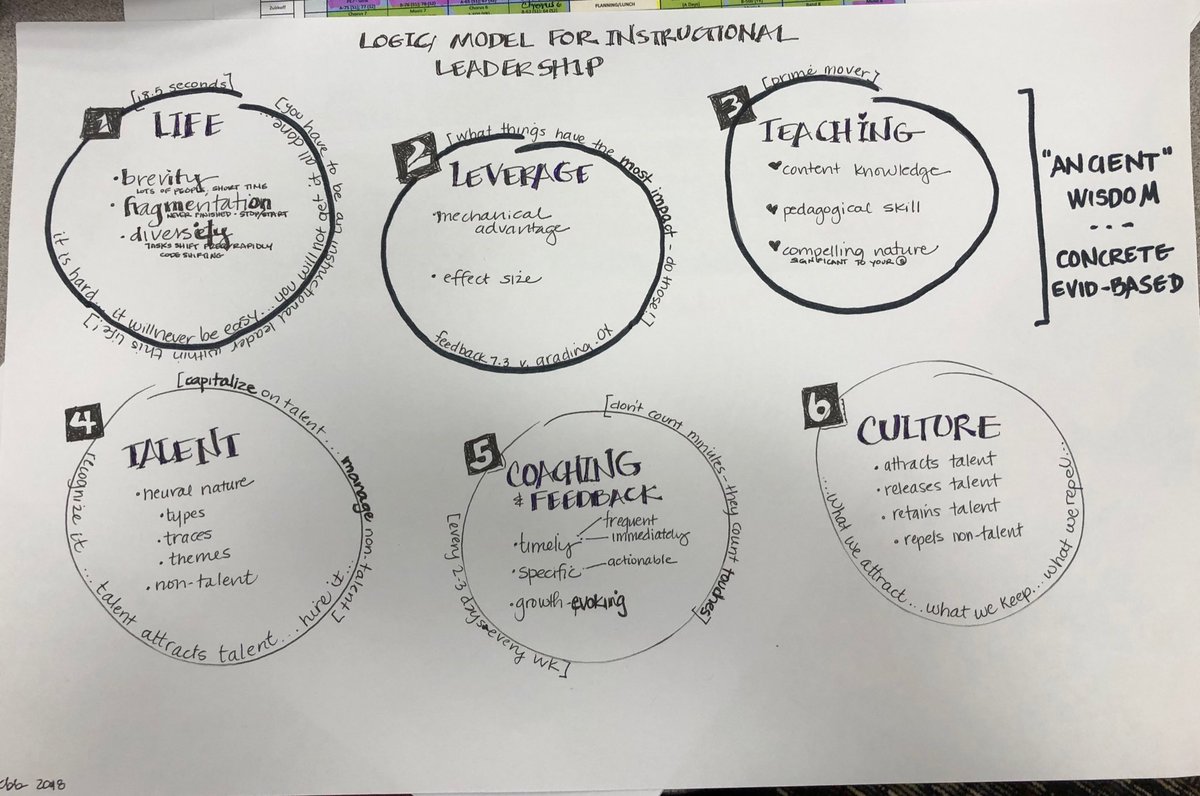 LOGIC MODEL FOR INSTRUCTIONAL
LEADERSHIP
1
[18.5 seconds]
LIFE
• brevity
LOTS OF PEOPLE, SHORT TIME
• fragmentation
NEVER FINISHED - STOP/START
• diversity
TASKS SHIFT RAPIDLY
CODE SHIFTING
[you have to be an instructional leader within this life!]
it is hard... it will never be easy... you will not get it all done...
2
[what things have the most impact - do those!]
LEVERAGE
• mechanical
advantage
• effect size
feedback 7.3 v. grading .0X
3
[prime mover]
TEACHING
♥ content knowledge
♥ pedagogical skill
♥ compelling nature
SIGNIFICANT TO YOUR
"ANCIENT"
WISDOM
- - -
CONCRETE
EVID-BASED
4
[capitalize on talent... manage non-talent]
TALENT
• neural nature
• types
• traces
• themes
• non-talent
recognize it... talent attracts talent... hire it...
5
[don't count minutes - they count touches]
COACHING
& FEEDBACK
• timely
frequent
immediately
• specific
actionable
• growth-evoking
[every 2-3 days - every wk]
6
CULTURE
• attracts talent
• releases talent
• retains talent
• repels non-talent
...what we attract... what we keep... what we repel...
2018
PLANNING/LUNCH